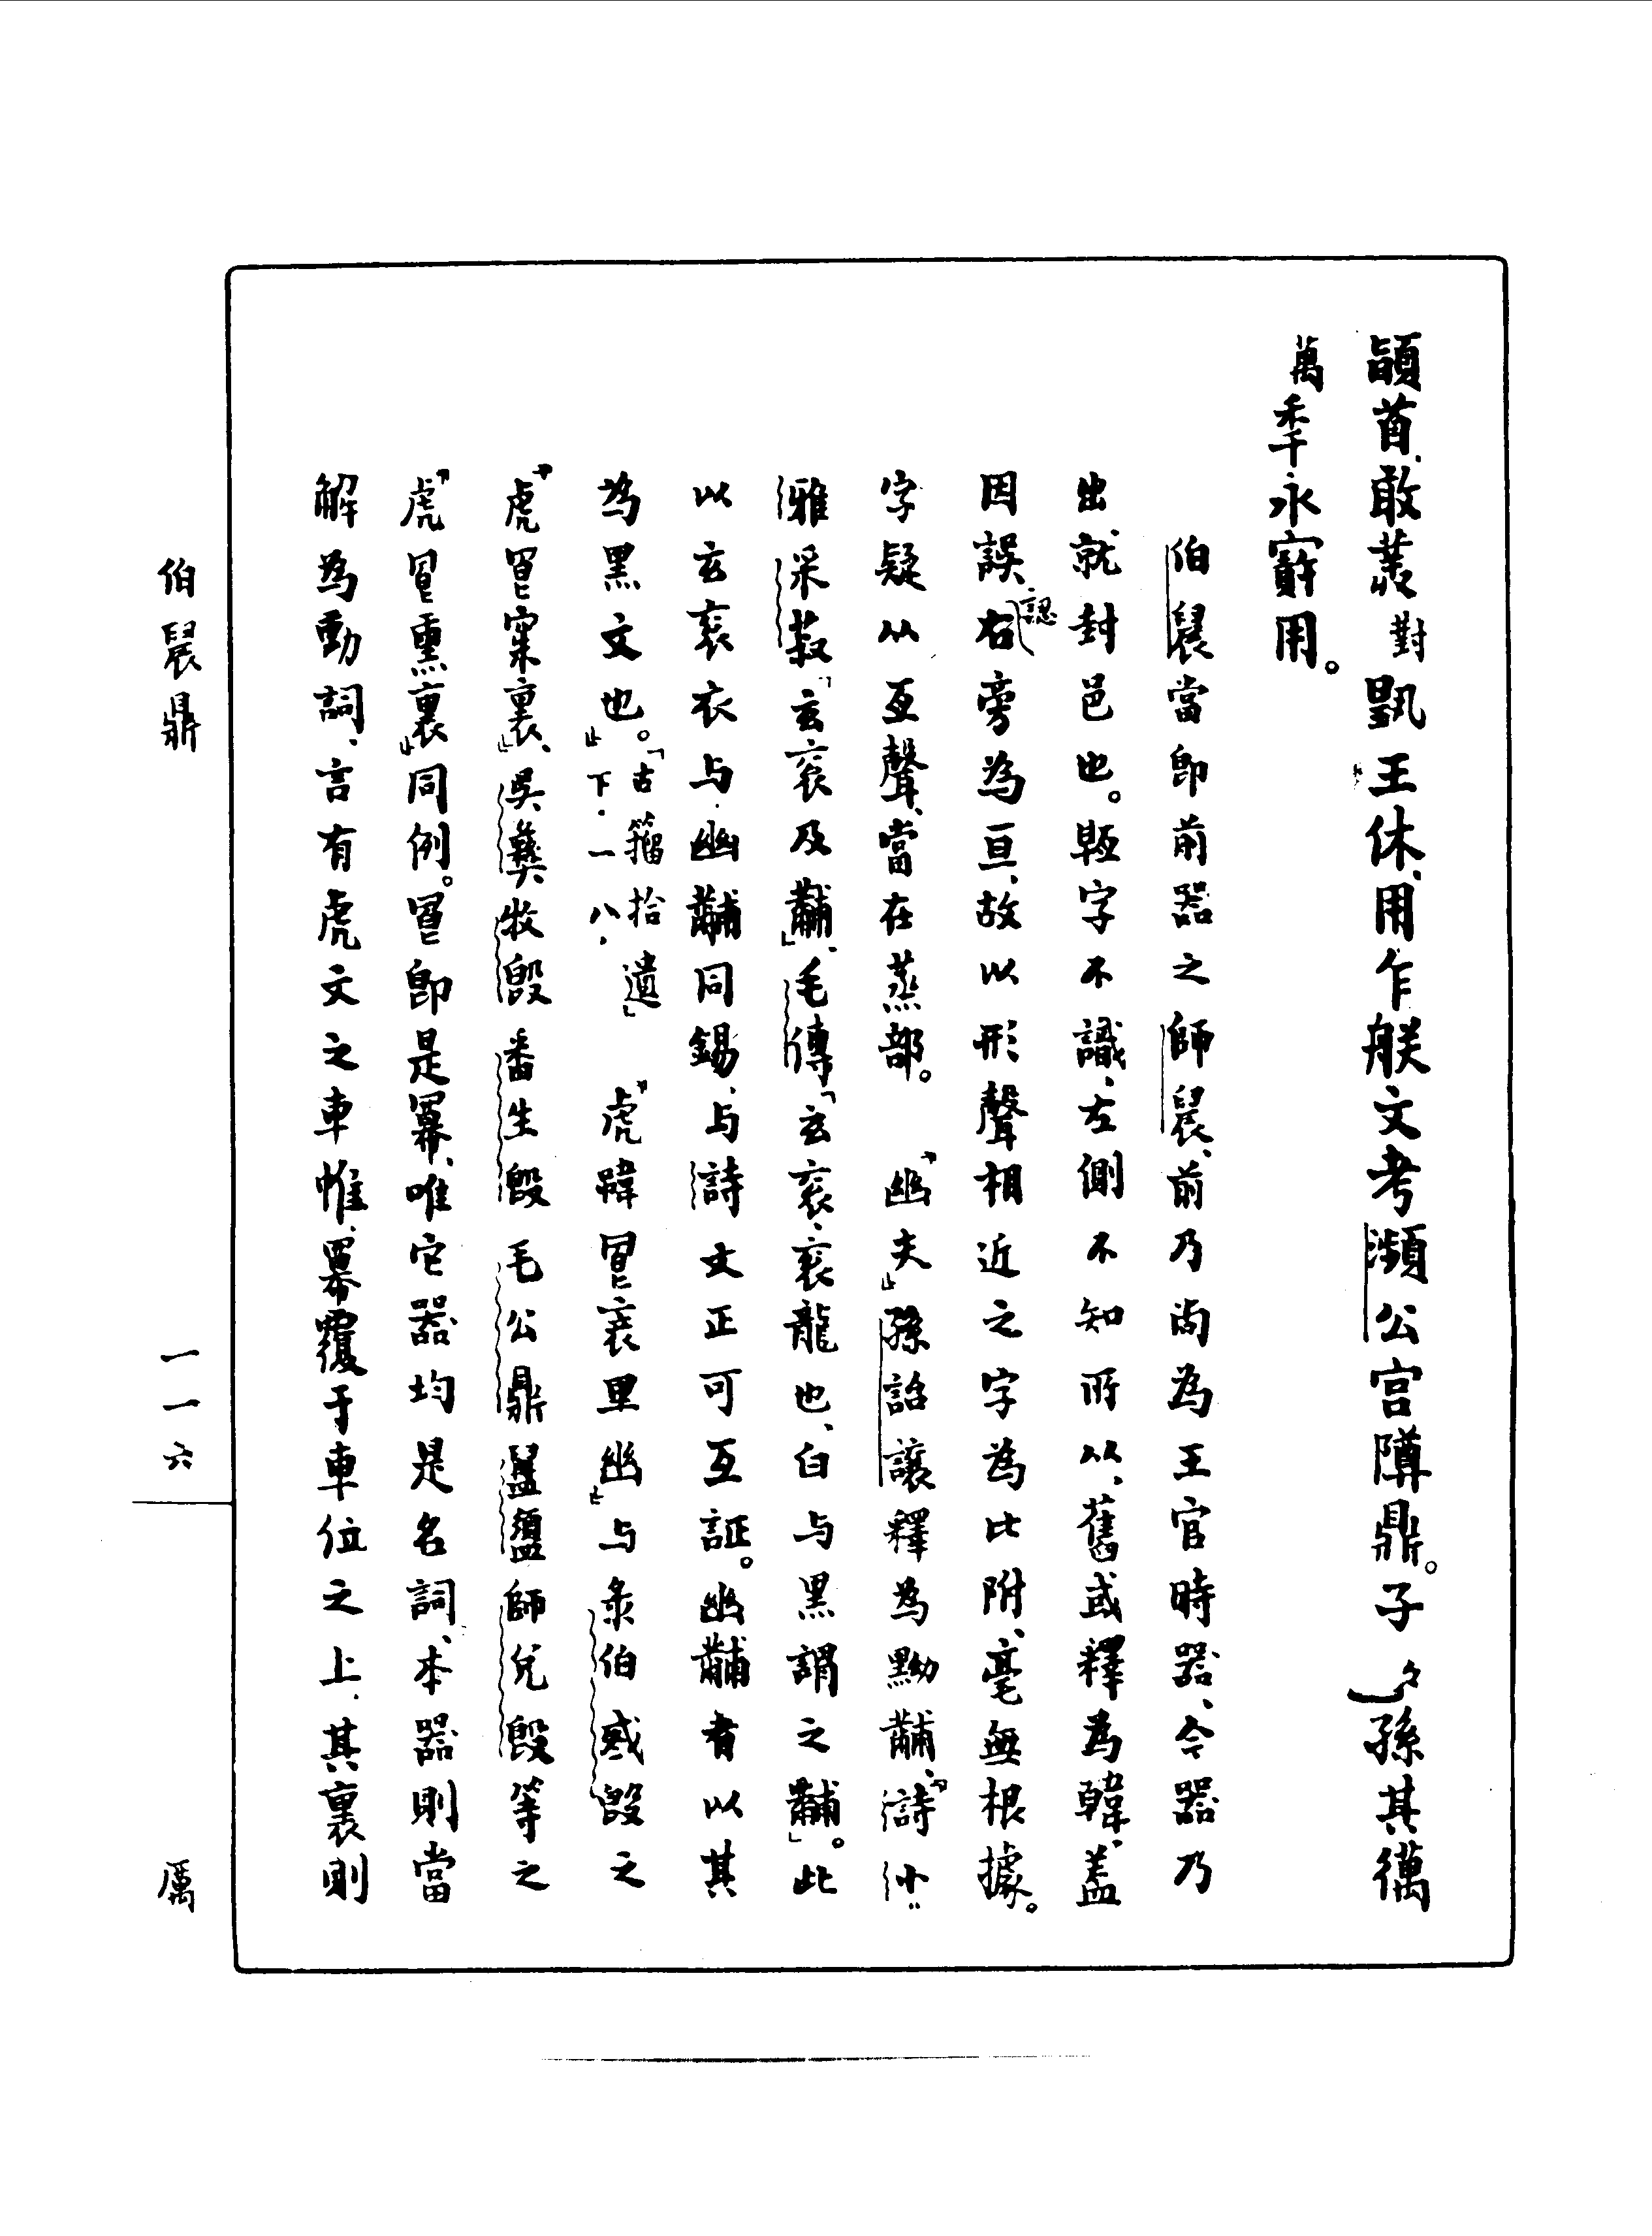 頴首、敢䒳對𩁹王休、用乍朕文考瀕公宫䵼鼎。子〻孫其䙘
萬秊永寳用。
伯㫳當即前器之師㫳、前乃尚為王官時器、今器乃
出就封邑也。䡖字不識、左側不知所从、舊或釋為韓、蓋
因誤認右旁為亘、故以形聲相近之字為比附、毫無根據。
字疑从亙聲、當在蒸部。 「幽夫」孫詒讓釋為黝黼、「詩小
雅采菽「玄衮及黼」、毛傳「玄衮、衮龍也、白与黑謂之黼」。此
以玄衮衣与幽黼同錫、与詩文正可互証。幽黼者以其
為黑文也。」「古籀拾遺」下·一八、 「虎幃冟衺里幽」与彔伯㦰𣪘之
「虎冟寀裏」、吳彝牧𣪘番生𣪘毛公鼎㫳盨師兌𣪘等之
「虎冟熏裏」同例。冟即是冪、唯它器均是名詞、本器則當
解為動詞、言有虎文之車帷、冪覆于車位之上、其裏則
伯㫳鼎
一一六
厲